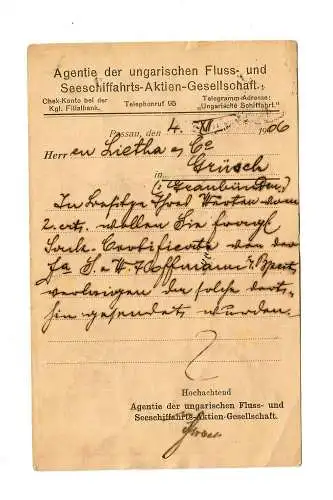 Agentie der ungarischen Fluss- und
Seeschiffahrts-Aktien-Gesellschaft.
Chek-Konto bei der
Kgl. Filialbank.
Telephonruf 95
Telegramm-Adresse:
"Ungarische Schiffahrt."
Passau, den 4. VII 1906
Herren Lietha & Co
in Grüsch
(: Graubünden :)
In Besitze Ihres Werten vom
2. crt. wollen Sie fragl
Certificate von der
Fa S. & W. Hoffmann
verlangen da solche dort-
hin gesendet wurden.
Hochachtend
Agentie der ungarischen Fluss- und
Seeschiffahrts-Aktien-Gesellschaft.